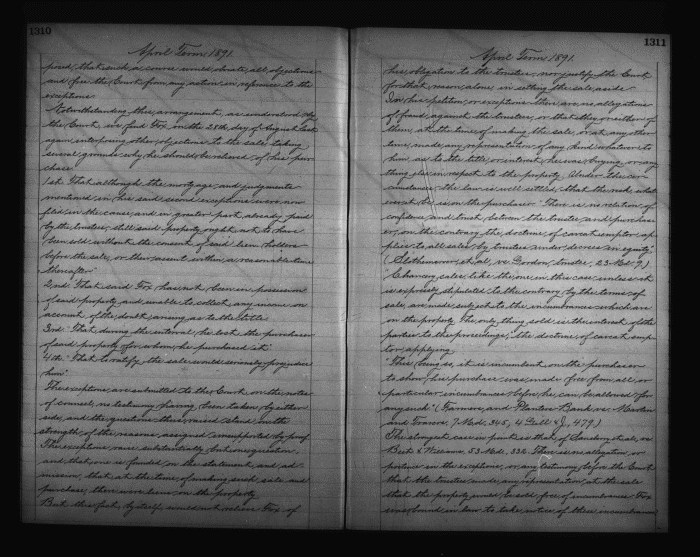 1310
April Term 1891.
posed, that such a course would obviate all objections
and free the Court from any action in reference to the
exceptions.
Notwithstanding this arrangement, as understood by
the Court, we find Fox, on the 28th day of August last
again interposing other objections to the sale, taking
several grounds why he should be relieved of his pur-
chase.
1st. That although the mortgage and judgments
mentioned in his said second exceptions were now
filed in the cause, and in greater part already paid
by the trustees, still said property ought not to have
been sold without the consent of said lien holders
before the sale, or their assent within a reasonable time
thereafter.
2nd. That said Fox has not been in possession
of said property and unable to collect any income on
account of the doubt arising as to the title.
3rd. That during the interval he lost the purchaser
of said property for whom he purchased it.
4th. That to ratify the sale would seriously prejudice
him.
The exceptions are submitted to the Court on the notes
of counsel, no testimony having been taken by either
side, and the questions thus raised stand on the
strength of the reasons assigned unsupported by proof.
The exceptions raise substantially but one question,
and that one is founded on the statement and ad-
mission, that at the time of making such sale and
purchase, there were liens on the property.
But this fact, by itself, would not relieve Fox of
1311
April Term 1891.
his obligation to the trustees, nor justify the Court
for that reason alone in setting the sale aside.
In his petition or exceptions there are no allegations
of fraud against the trustees, or that they or either of
them, at the time of making the sale, or at any other
time, made any representation of any kind whatever to
him, as to the title, or interest, he was buying, or any
thing else in respect to the property. Under the cir-
cumstances the law is well settled that the risk, what
ever it be, is on the purchaser. "There is no relation of
confidence and trust between the trustee and purchas-
er, on the contrary, the doctrine of caveat emptor ap-
plies to all sales by trustees under decrees in equity."
et al, vs. Gordon, trustee, 23 Md. 9.)
"Chancery sales like the one in this case, unless it
is expressly stipulated to the contrary by the terms of
sale, are made subject to the incumbrances which are
on the property. The only thing sold is the interest of the
parties to the proceedings, the doctrine of caveat emp-
tor applying.
"This being so, it is incumbent on the purchaser
to show his purchase was made free from all, or
particular incumbrances before he can be allowed for
any such." (Farmers and Planters Bank vs. Martin
and 7 Md. 345, 4 Gill & J., 479.)
The strongest case in point is that of et al, vs
53 Md. 332. There is no allegation or
pretense in the exceptions, or any testimony before the Court
that the trustees made any representation at the sale
that the property would be sold free of incumbrances. Fox
was bound in law to take notice of these incumbrances